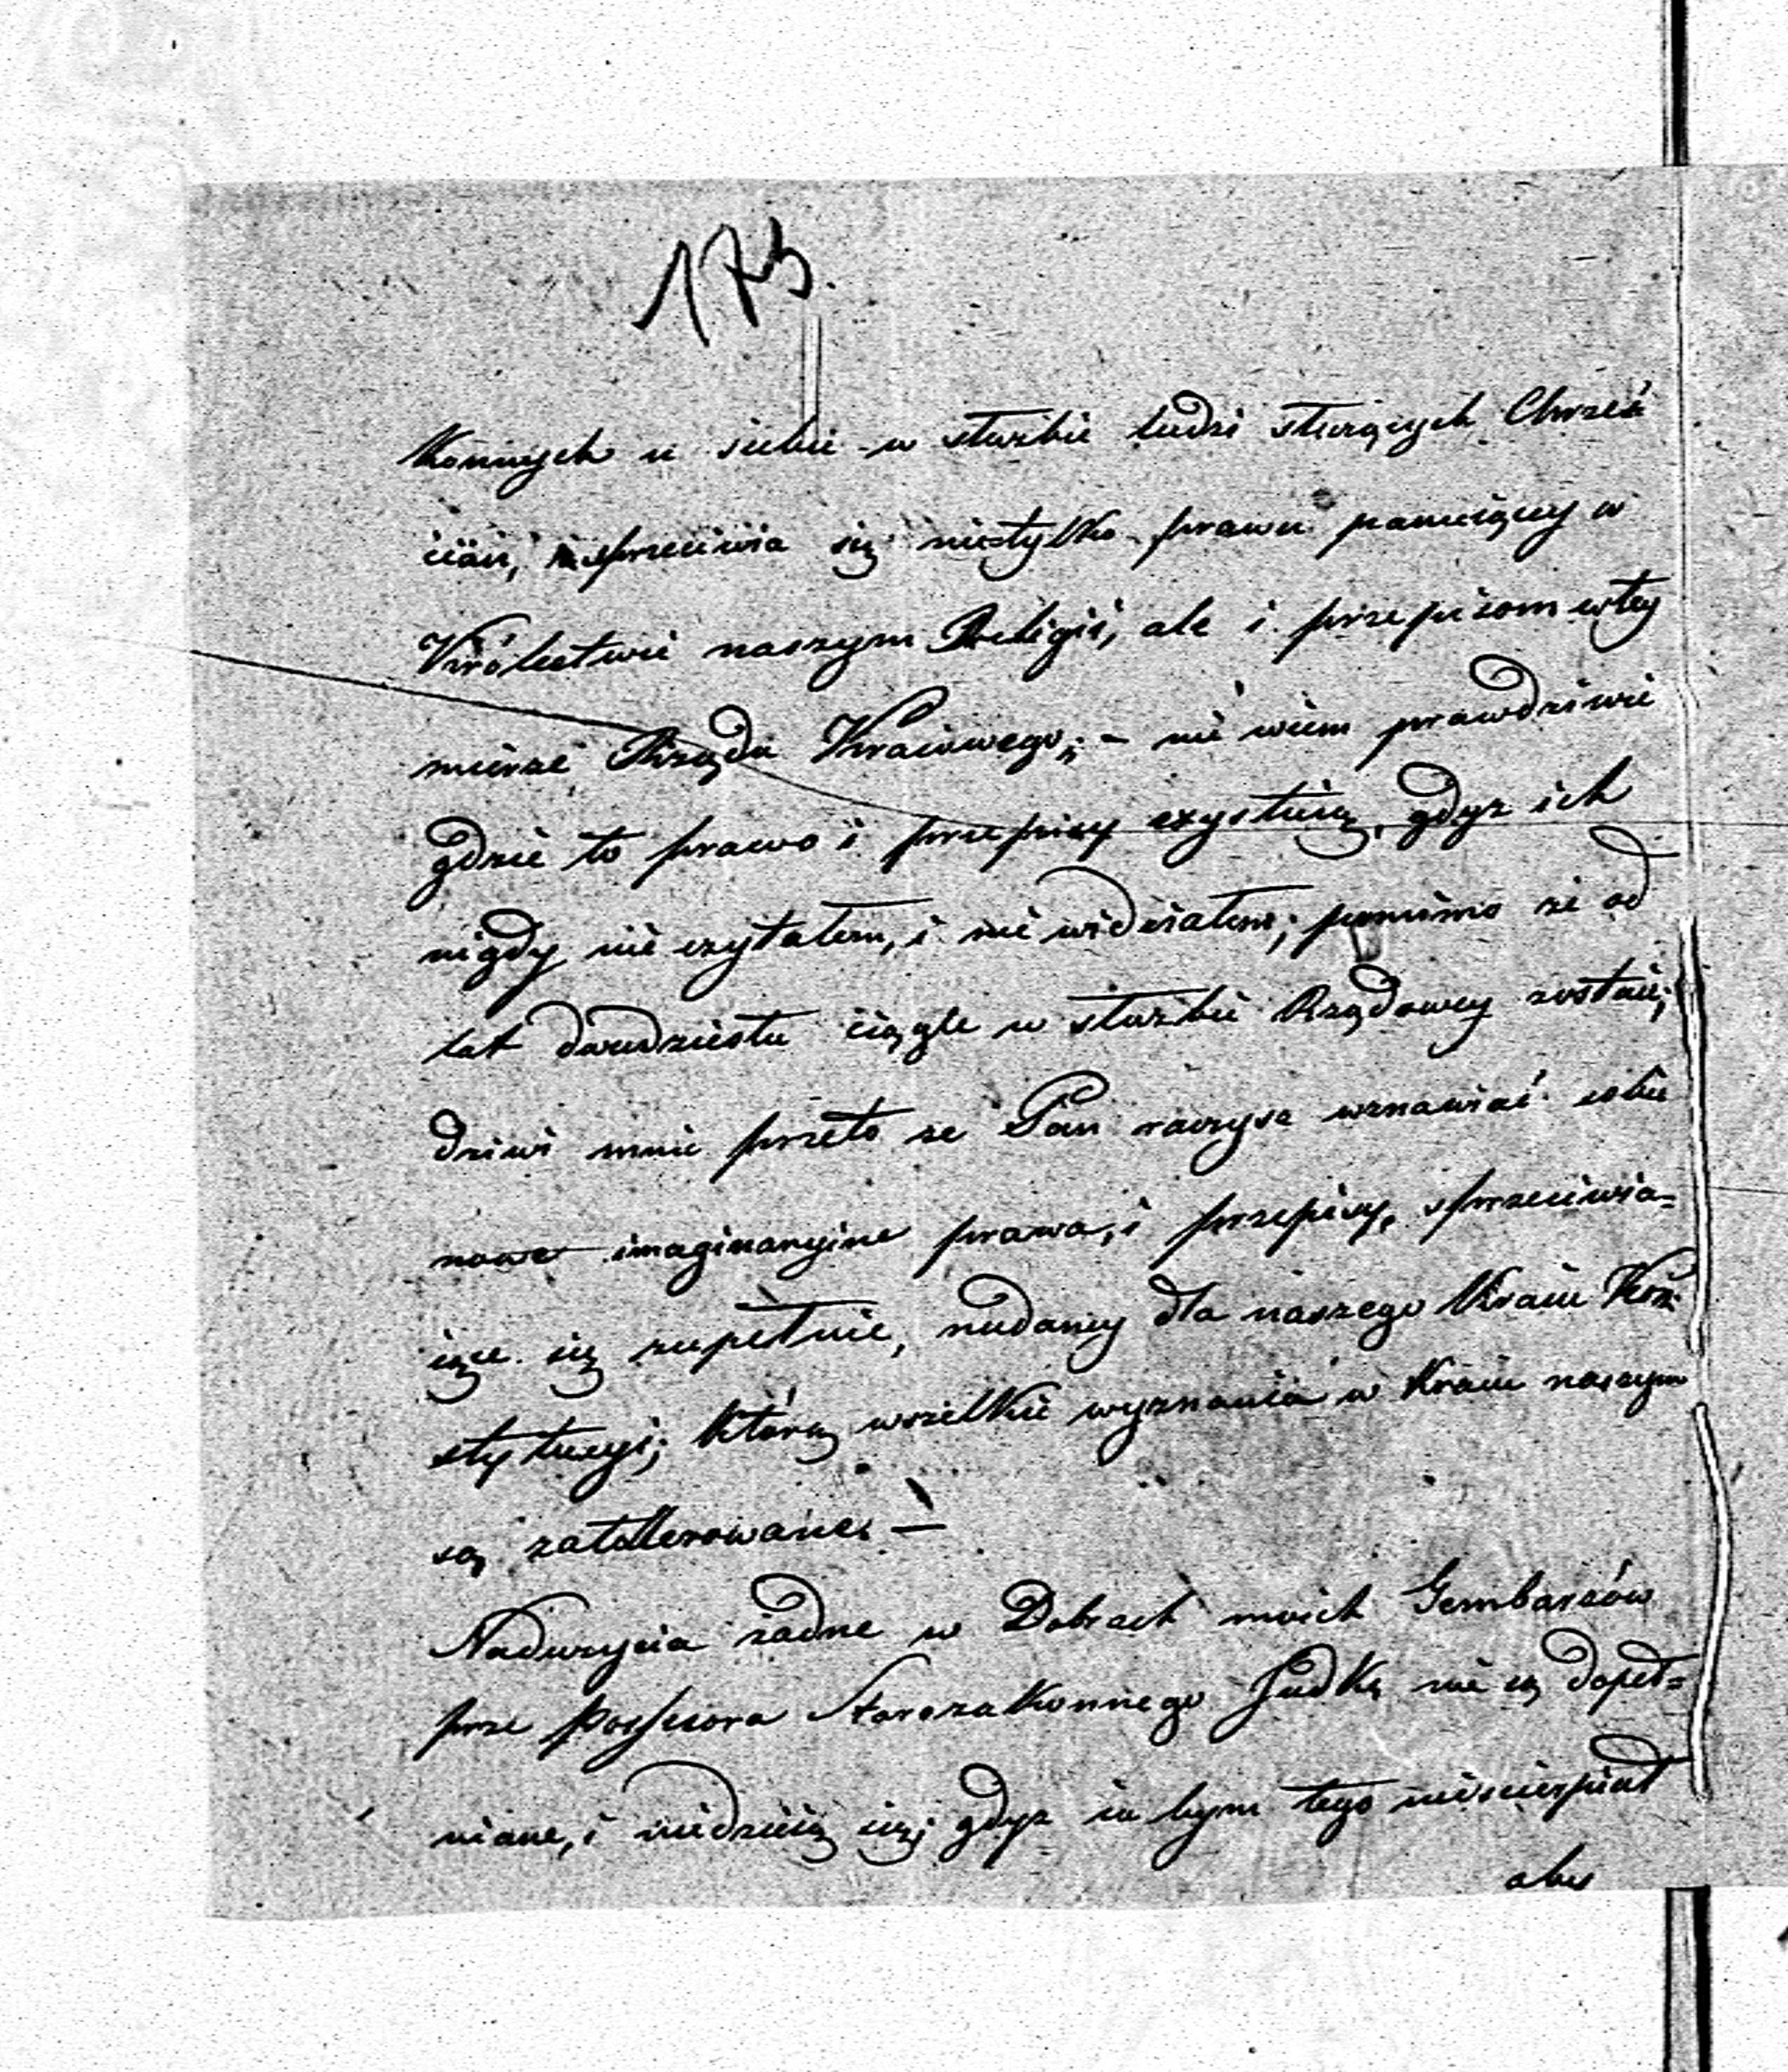 173.
konnych u siebie w służbie ludzi służących Chrześ
cian, sprzeciwia się nietylko prawu panuiącey w
Królestwie naszym Religii, ale i przepisom wtey
mierze Rządu Kraiowego; – nie wiem prawdziwie
gdzie to prawo i przepisy exystuią, gdyż ich
nigdy nie czytałem, i nie widziałem; pomimo że od
lat dwudziestu ciągle w służbie Rządowey zostaię;
dziwi mnie przeto że Pan raczysz wznawiać sobie
nowe imaginaryine prawa, i przepisy, sprzeciwia=
iące się zupełnie, nadaney dla naszego Kraiu Kon:
stytucyi; którą wszelkie wyznania w Kraiu naszym
są zatollerowane. –
Nadużycia żadne w Dobrach moich Gembarzów
prze Possesora Starozakonnego Judkę nie są dopeł=
niane, i niedzieią się; gdyż ia bym tego niścierpiał
aby